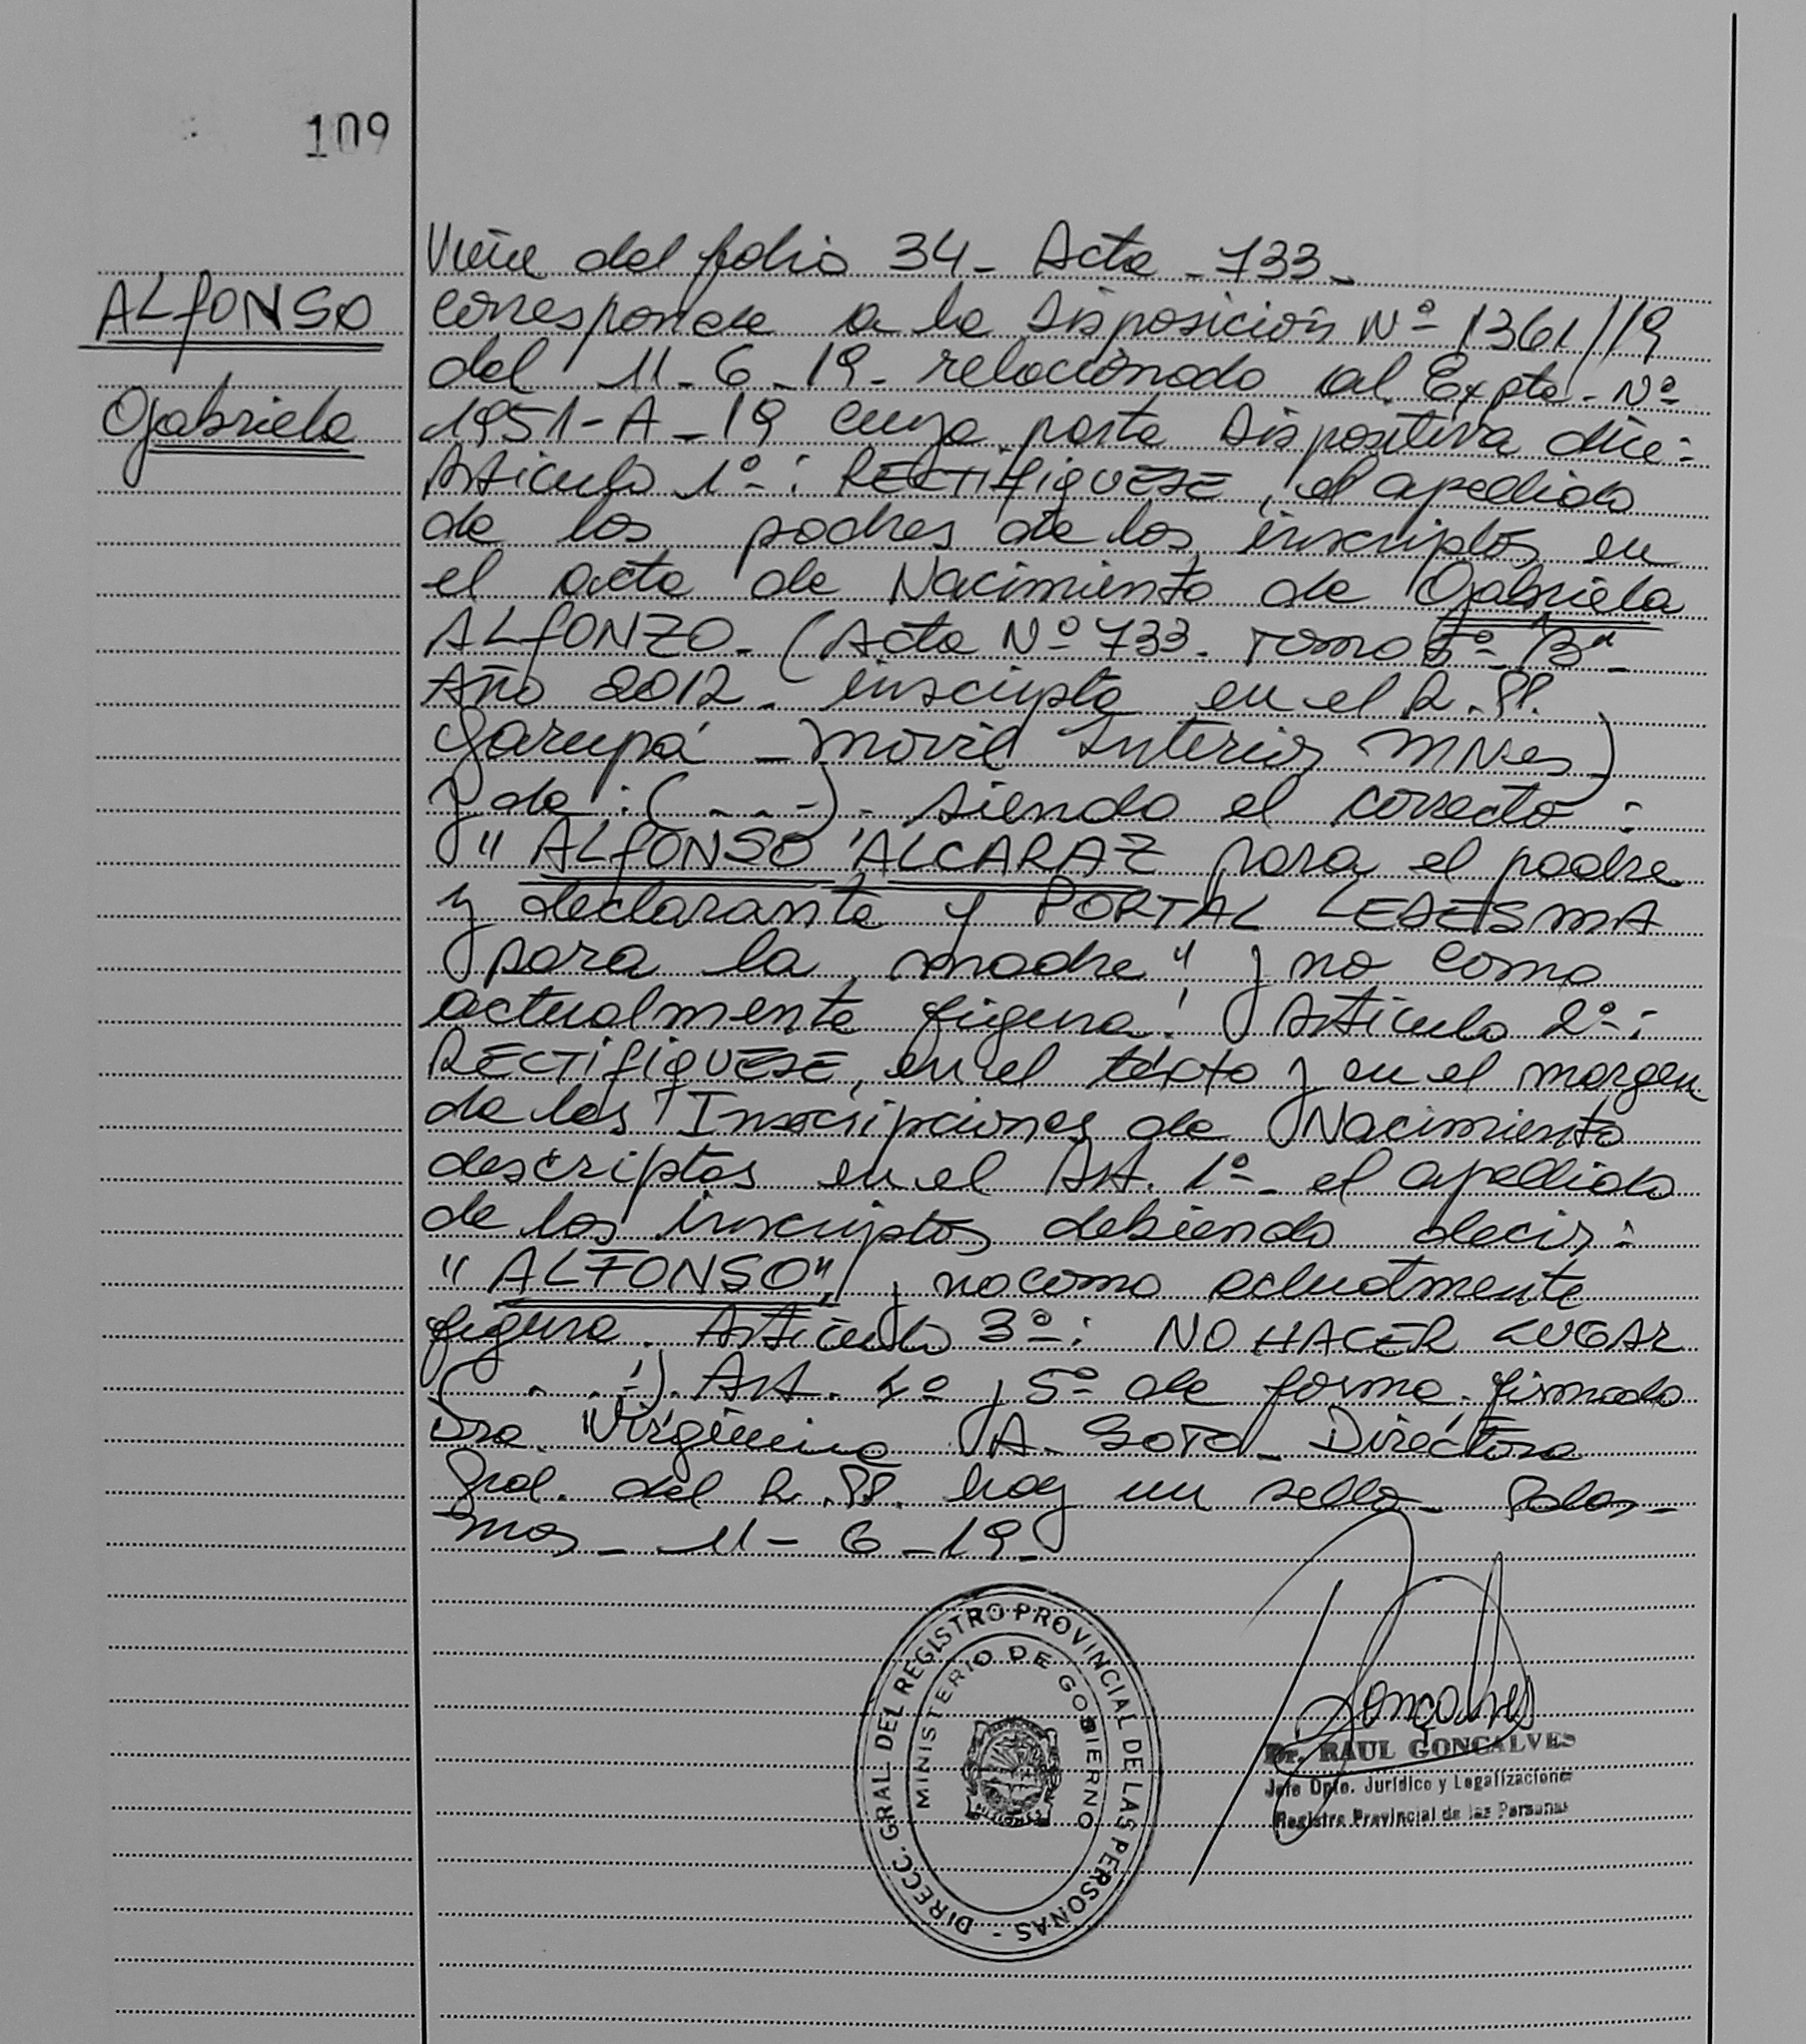 109
ALFONSO
Gabriela
Viene del folio 34 - Acta - 733 -
corresponde a la Disposición Nº 1361//19
del 11-6-19- relacionado al Expte- Nº
1951-A-19 cuya parte Dispositiva dice:
Articulo 1º: RECTIFIQUESE, el apellido
de los padres de los inscriptos en
el acta de Nacimiento de Gabriela
ALFONZO- (Acta Nº 733- Tomo 5º "B"-
Año 2012- inscripta en el R.PP.
Garupá - Movil Interior MNes)
y de: (...-)- siendo el correcto:
"ALFONSO ALCARAZ para el padre
y declarante y PORTAL LEDESMA
para la madre" y no como
actualmente figura. Articulo 2º:
RECTIFIQUESE, en el texto y en el margen
de las Inscripciones de Nacimiento
descriptos en el Art. 1º- el apellido
de los inscriptos debiendo decir:
"ALFONSO", y no como actualmente
figura. Articulo 3º: NO HACER LUGAR
(...-). Art. 4º y 5º de forma. firmado
Dra. Virginia A. SOTO- Directora
Gral. del R.PP. hay un sello-
mas - 11-6-19-
DIRECC. GRAL. DEL REGISTRO PROVINCIAL DE LAS PERSONAS -
MINISTERIO DE GOBIERNO
Goncalves
Dr. RAUL GONCALVES
Jefe Dpto. Jurídico y Legalizaciones
Registro Provincial de las Personas